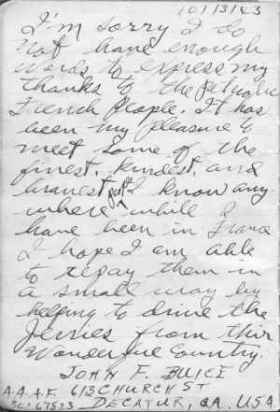 10/3/43
I'm sorry I do
not have enough
words to express my
thanks to the
French People. It has
been my pleasure to
meet some of the
finest, kindest, and
bravest I know any
where while I
have been in France
I hope I am able
to repay them in
a small way by
helping to drive the
Jerries from this
Wonderful Country.
JOHN F. BUICE
A.A.F. 613 CHURCH ST
DECATUR, GA. USA